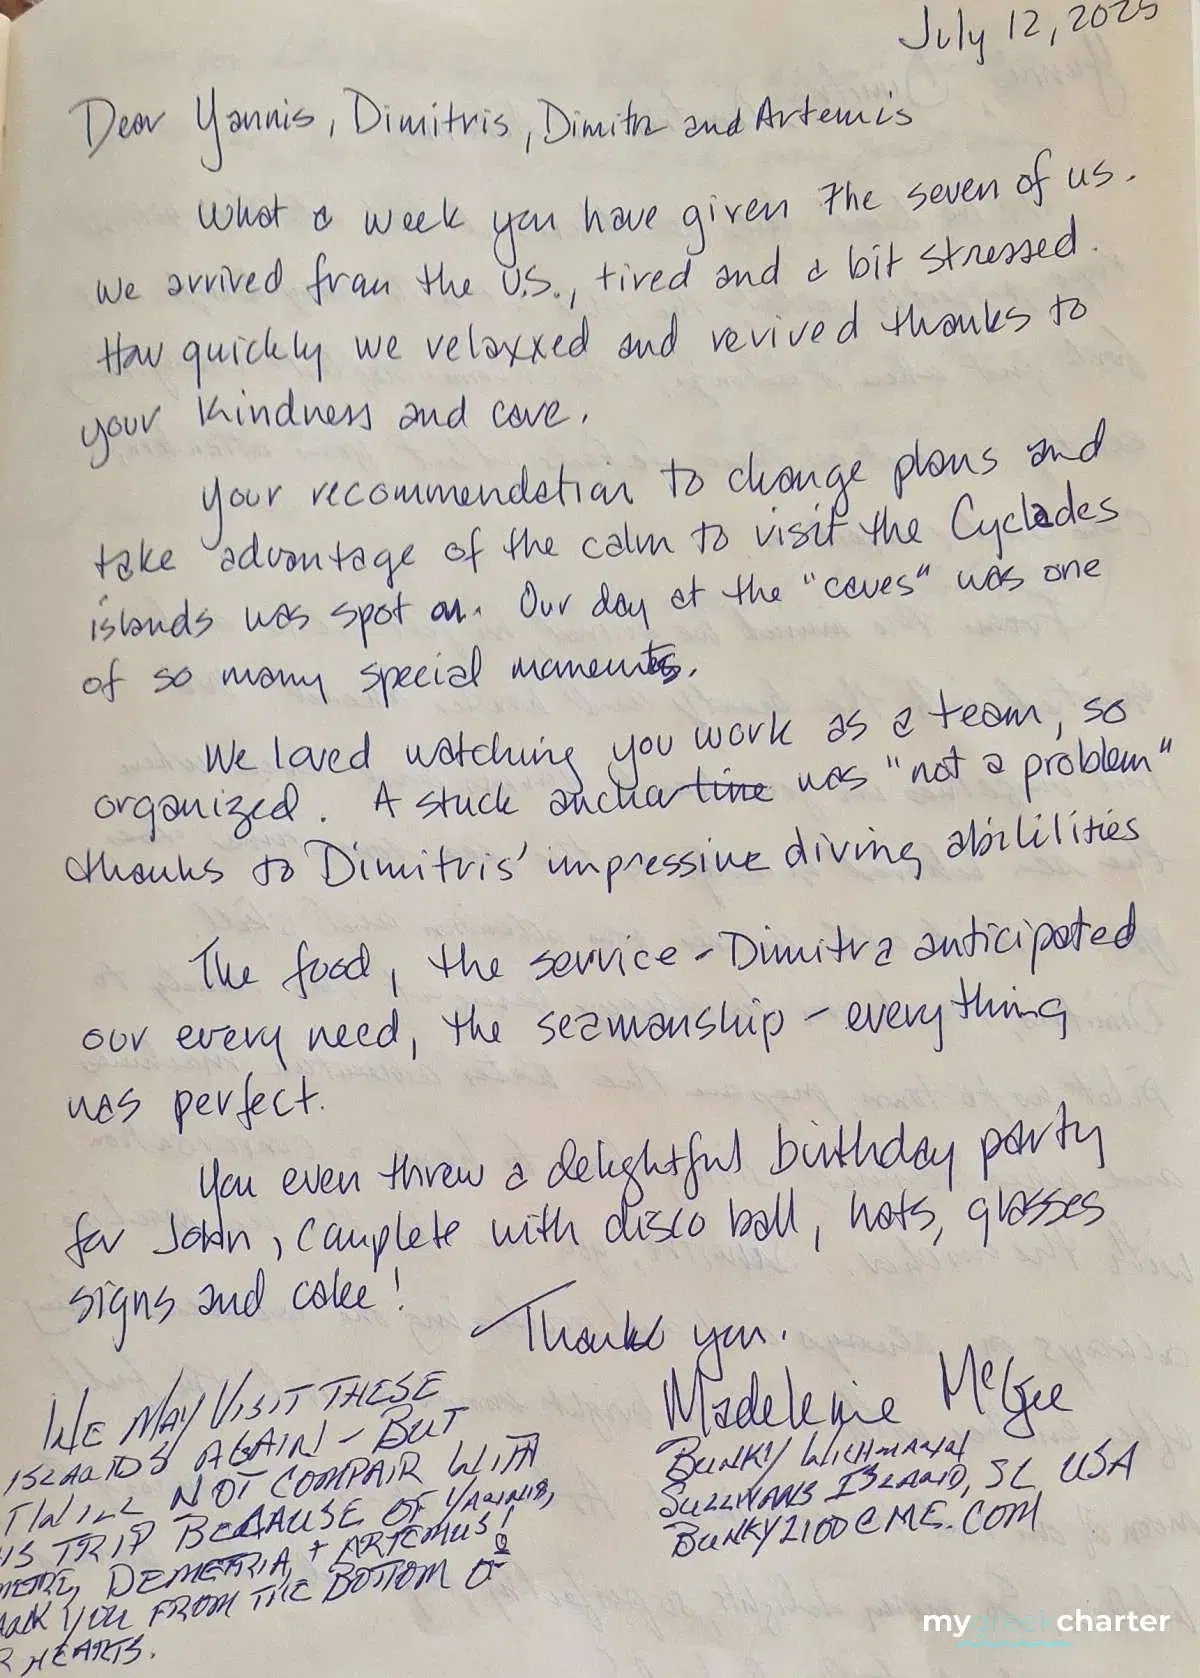 July 12, 2025
Dear Yannis, Dimitris, Dimitra and Artemis
What a week you have given the seven of us.
We arrived from the U.S., tired and a bit stressed.
How quickly we relaxxed and revived thanks to
your kindness and care.
Your recommendation to change plans and
take advantage of the calm to visit the Cyclades
islands was spot on. Our day at the "caves" was one
of so many special moments.
We loved watching you work as a team, so
organized. A stuck anchor line was "not a problem"
thanks to Dimitris' impressive diving abililities
The food, the service - Dimitra anticipated
our every need, the seamanship - everything
was perfect.
You even threw a delightful birthday party
for John, complete with disco ball, hats, glasses
signs and cake!
Thank you.
Madeleine McGee
BUNKY WICHMANN
SULLIVANS ISLAND, SC USA
BUNKY2100@ME.COM
WE MAY VISIT THESE
ISLANDS AGAIN - BUT
T WILL NOT COMPAIR WITH
IS TRIP BECAUSE OF YANNIS,
DEMETRIA, + ARTEMUS!
YOU FROM THE BOTTOM OF
HEARTS.
mygreekcharter